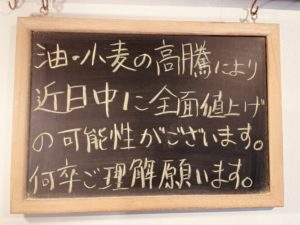 油・小麦の高騰により
近日中に全面値上げ
の可能性がございます。
何卒ご理解願います。